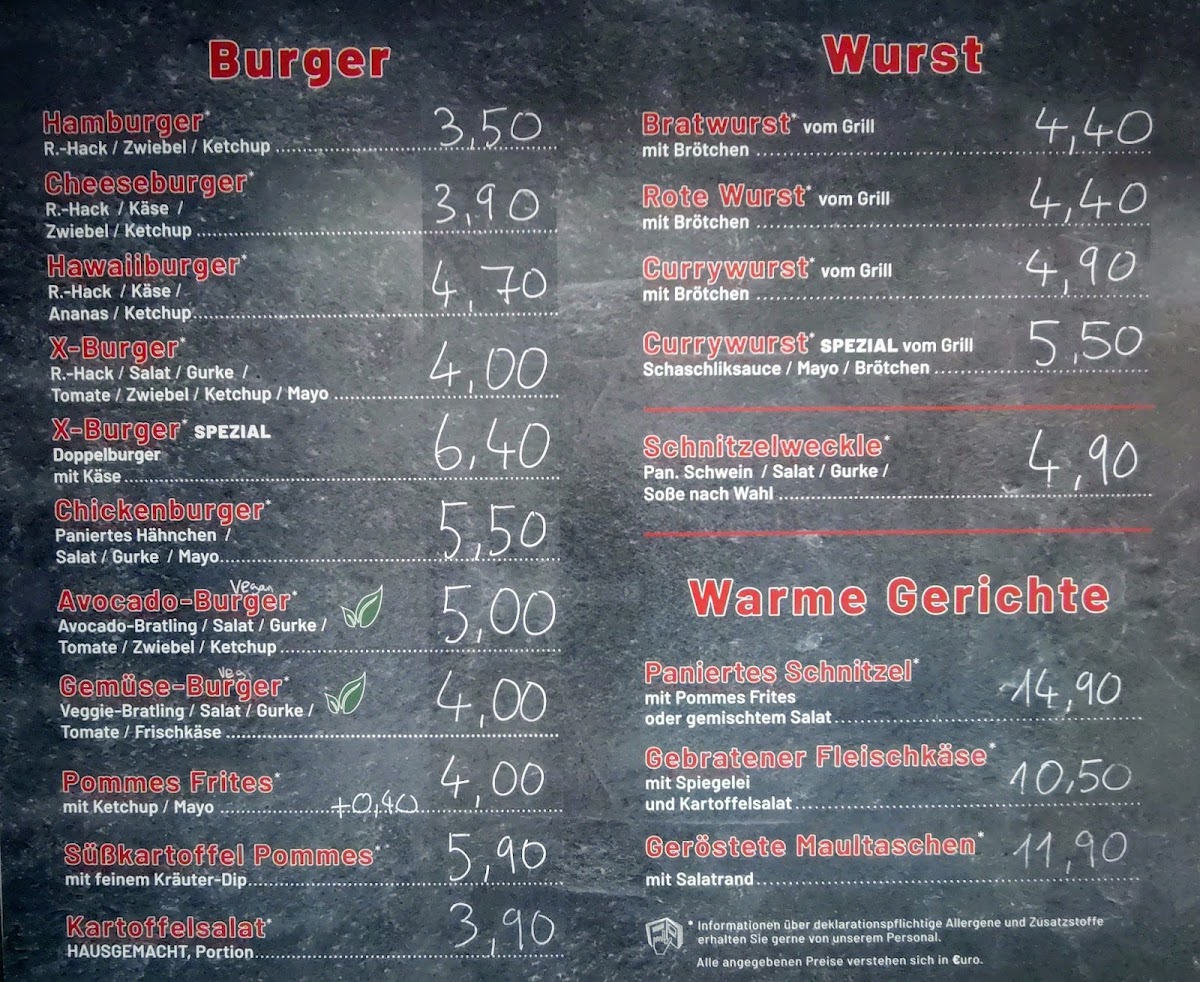 Burger
Hamburger* 3,50
R.-Hack / Zwiebel / Ketchup
Cheeseburger*
R.-Hack / Käse / 3,90
Zwiebel / Ketchup
Hawaiiburger*
R.-Hack / Käse / 4,70
Ananas / Ketchup
X-Burger*
R.-Hack / Salat / Gurke / 4,00
Tomate / Zwiebel / Ketchup / Mayo
X-Burger* SPEZIAL
Doppelburger 6,40
mit Käse
Chickenburger*
Paniertes Hähnchen / 5,50
Salat / Gurke / Mayo
Vegan
Avocado-Burger*
Avocado-Bratling / Salat / Gurke / 5,00
Tomate / Zwiebel / Ketchup
Veg
Gemüse-Burger*
Veggie-Bratling / Salat / Gurke / 4,00
Tomate / Frischkäse
Pommes Frites* 4,00
mit Ketchup / Mayo +0,40
Süßkartoffel Pommes* 5,90
mit feinem Kräuter-Dip
Kartoffelsalat* 3,90
HAUSGEMACHT, Portion
Wurst
Bratwurst* vom Grill 4,40
mit Brötchen
Rote Wurst* vom Grill 4,40
mit Brötchen
Currywurst* vom Grill 4,90
mit Brötchen
Currywurst* SPEZIAL vom Grill 5,50
Schaschliksauce / Mayo / Brötchen
Schnitzelweckle*
Pan. Schwein / Salat / Gurke / 4,90
Soße nach Wahl
Warme Gerichte
Paniertes Schnitzel*
mit Pommes Frites 14,90
oder gemischtem Salat
Gebratener Fleischkäse*
mit Spiegelei 10,50
und Kartoffelsalat
Geröstete Maultaschen* 11,90
mit Salatrand
* Informationen über deklarationspflichtige Allergene und Zusatzstoffe
erhalten Sie gerne von unserem Personal.
Alle angegebenen Preise verstehen sich in €uro.